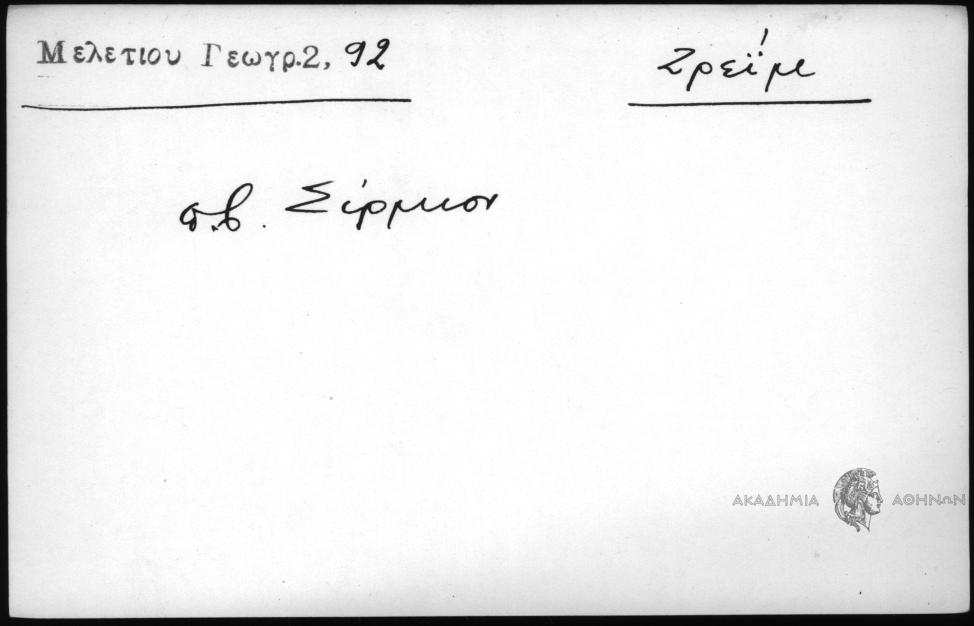 Μελετιου Γεωγρ.2, 92
Ζρεΐμ
σ.β. Σίρμιον
ΑΚΑΔΗΜΙΑ ΑΘΗΝΩΝ